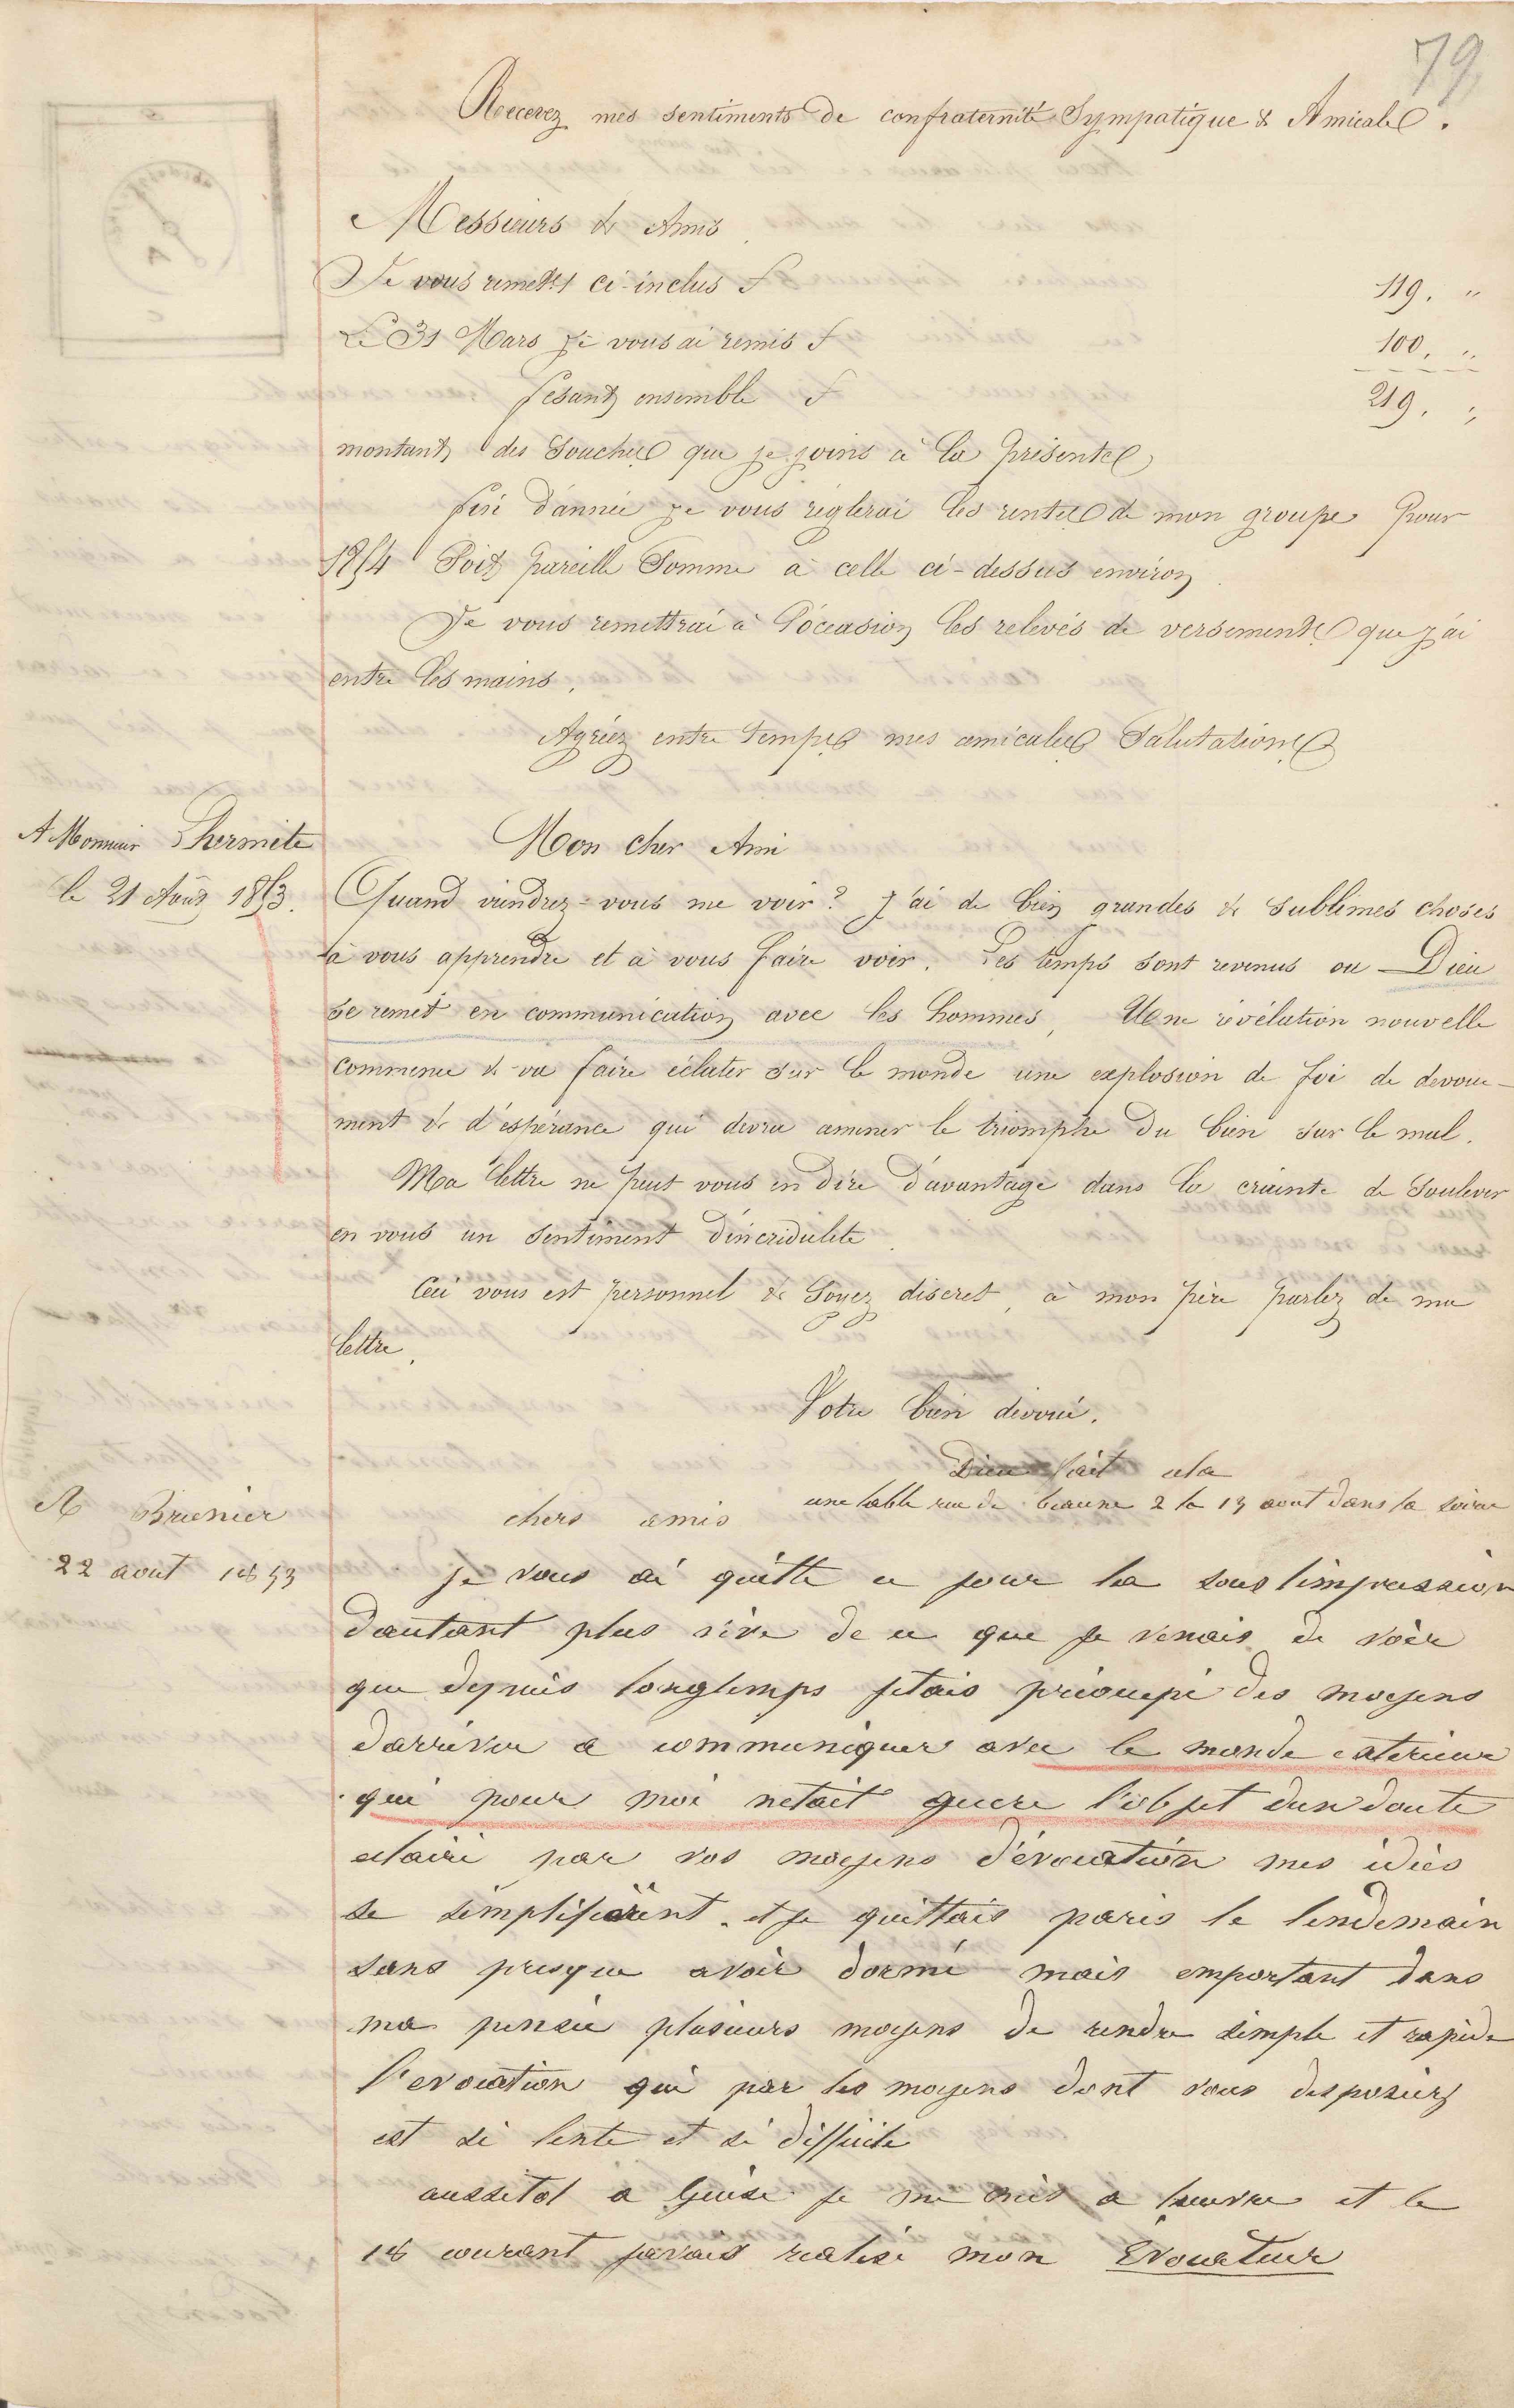 79
Recevez mes sentiments de confraternité Sympatique & Amicale.
Messieurs & Amis
Je vous remets ci-inclus f 119. "
Le 31 Mars je vous ai remis f 100. "
fesant ensemble f 219. "
montant des Souches que je joins à la présente
fin d'année je vous règlerai les rentes de mon groupe pour
1854 Soit pareille Somme à celle ci-dessus environ
Je vous remettrai à l'occasion les relevés de versements que j'ai
entre les mains.
Agréez entre temps mes amicales Salutations
A Monsieur Lhermite
le 21 Août 1853.
Mon cher Ami
Quand viendrez-vous me voir ? J'ai de bien grandes & sublimes choses
à vous apprendre et à vous faire voir. Les temps sont revenus ou Dieu
se remet en communication avec les hommes, Une révélation nouvelle
commence & va faire éclater sur le monde une explosion de foi de devoue-
ment & d'espérance qui devra amener le triomphe du bien sur le mal.
Ma lettre ne peut vous en dire d'avantage dans la crainte de Soulever
en vous un sentiment d'incrédulité
Ceci vous est personnel & Soyez discret, à mon père parlez de ma
lettre.
Votre bien dévoué.
Dieu fait cela
une table rue de beaune 2 le 13 aout dans la soirée
A Brunier
22 aout 1853
chers amis
je vous ai quitté ce jour la sous l'impression
dautant plus vive de ce que je venais de voir
que depuis longtemps jetais préoccupé des moyens
darriver a communiquer avec le monde exterieur
qui pour moi netait guere l'objet dun doute
eclairé par vos moyens d'évocation mes idées
se simplifièrent. et je quittais paris le lendemain
sans presque avoir dormi mais emportant dans
ma pensée plusieurs moyens de rendre simple et rapide
l'evocation qui par les moyens dont vous disposiez
est si lente et si difficile
aussitot a Guise je me mis a l'œuvre et le
18 courant javais realisé mon Evocateur